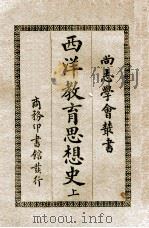 尚志學會叢書
西洋教育思想史 上
商務印書館發行
www.toutu001.com